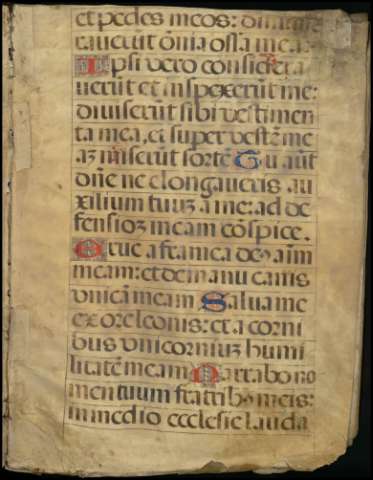 et pedes meos: dinume
rauerūt ōnia ossa mea.
Ipsi vero considera
uerūt et inspexerūt me:
diuiserūt sibi vestimen
ta mea, et super vestē me
aꝫ miserūt sortē Tu aūt
dñe ne elongaueris au
xilium tuuꝫ a me: ad de
fensioꝫ meam cōspice.
Erue a framea deꝰ aīm
meam: et de manu canis
vnicā meam Salua me
ex ore leonis: et a corni
bus vnicorniuꝫ humi
litatē meam Narrabo no
men tuum fratribꝰ meis:
in medio ecclesie lauda